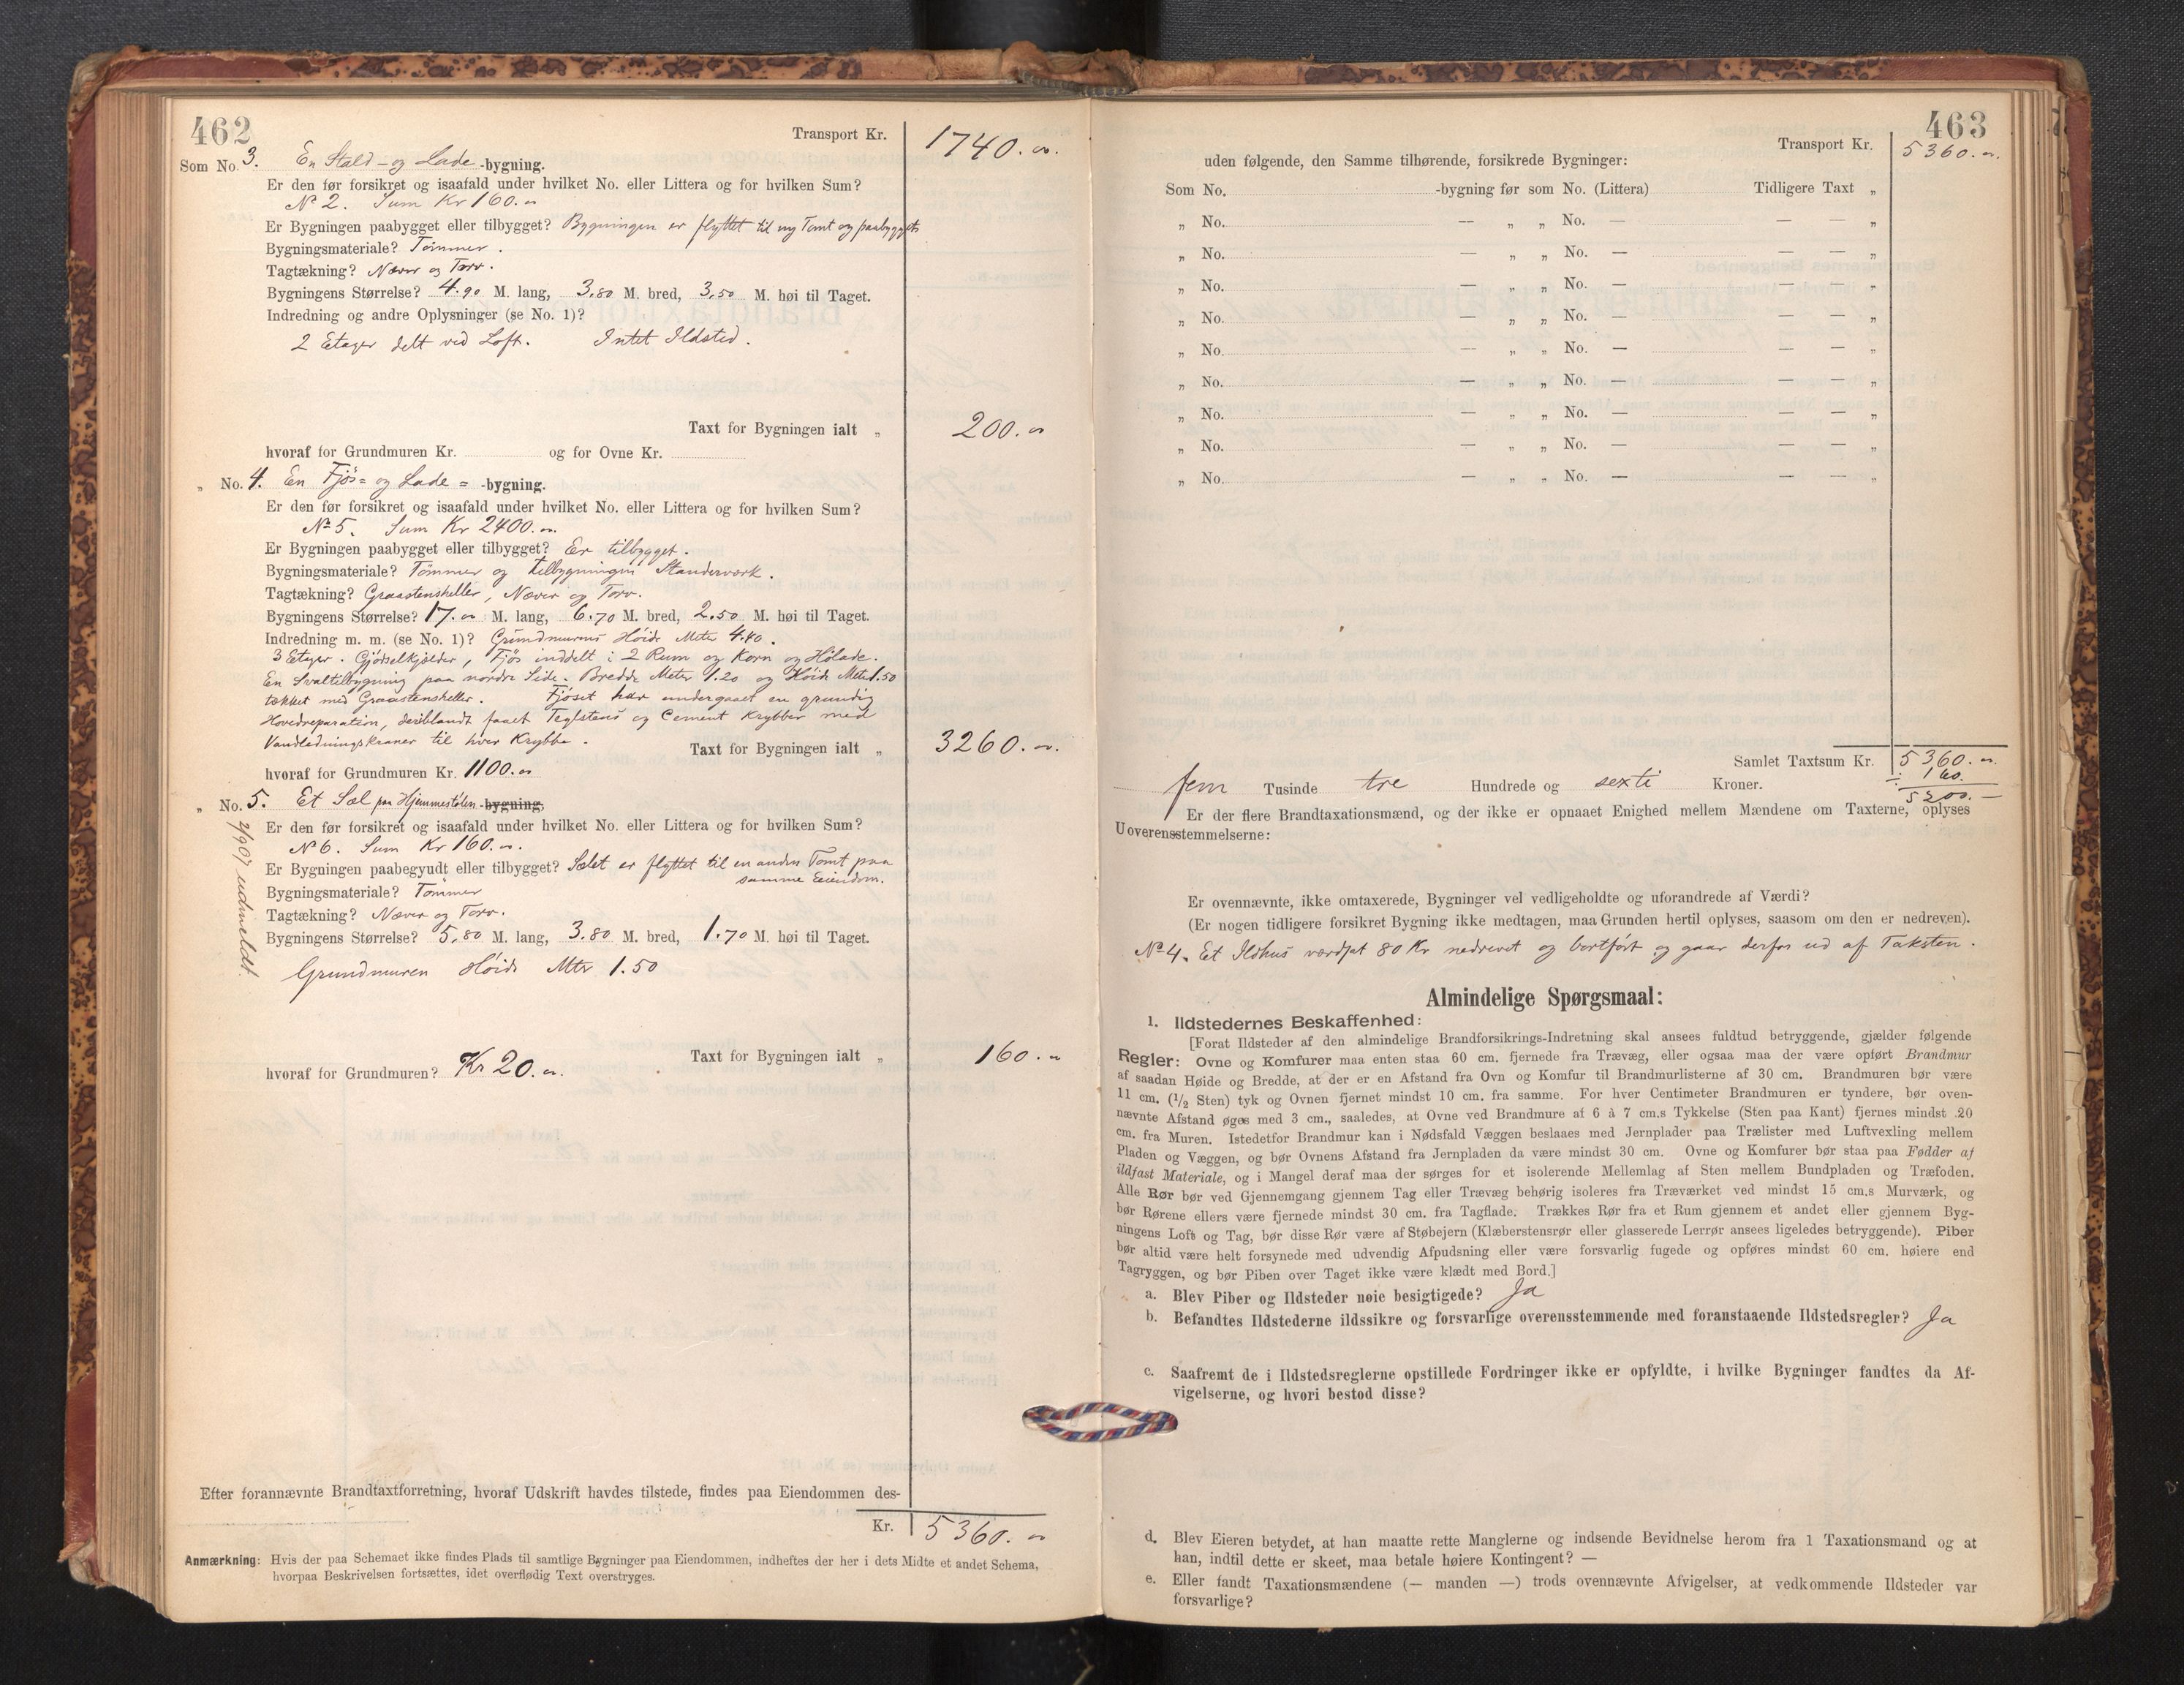 462
Transport Kr. 1740.00.
Som No. 3. En Stald- og Lade -bygning.
Er den før forsikret og isaafald under hvilket No. eller Littera og for hvilken Sum?
No 2. Sum Kr 160.00
Er Bygningen paabygget eller tilbygget? Bygningen er flyttet til ny Tomt og paabygget
Bygningsmateriale? Tømmer.
Tagtækning? Næver og Torv.
Bygningens Størrelse? 4.90 M. lang, 3,80 M. bred, 3,50 M. høi til Taget.
Indredning og andre Oplysninger (se No. 1)?
2 Etager delt ved Loft. Intet Ildsted.
Taxt for Bygningen ialt „ 200.00
hvoraf for Grundmuren Kr. og for Ovne Kr.
„ No. 4. En Fjøs- og Lade- -bygning.
Er den før forsikret og isaafald under hvilket No. eller Littera og for hvilken Sum?
No 5. Sum Kr 2400.00.
Er Bygningen paabygget eller tilbygget? Er tilbygget.
Bygningsmateriale? Tømmer og tilbygningen Standerværk.
Tagtækning? Graastensheller, Næver og Torv.
Bygningens Størrelse? 17.00 M. lang, 6.70 M. bred, 2.50 M. høi til Taget.
Indredning m. m. (se No. 1)? Grundmurens Høide Meter 4.40.
3 Etager. Gjødselkjælder, Fjøs inddelt i 2 Rum og Korn og Hølade.
En Svaltilbygning paa nordre Side. Bredde Meter 1.20 og Høide Meter 1.50
tækket med Graastensheller. Fjøset har undergaaet en grundig
Hovedreparation, deriblandt faaet Teglstens og Cement Krybber med
Vandledningskraner til hver Krybbe.
Taxt for Bygningen ialt „ 3260.00.
hvoraf for Grundmuren Kr. 1100.00
„ No. 5. Et Sæl paa Hjemmestølen -bygning.
Er den før forsikret og isaafald under hvilket No. eller Littera og for hvilken Sum?
No 6. Sum Kr 160.00.
Er Bygningen paabegyudt eller tilbygget? Sælet er flyttet til en anden Tomt paa
samme Eiendom.
Bygningsmateriale? Tømmer
Tagtækning? Næver og Torv.
Bygningens Størrelse? 5,80 M. lang, 3.80 M. bred, 1.70 M. høi til Taget.
Grundmuren Høide Mtr 1.50
udmeldt.
Taxt for Bygningen ialt „ 160.00
hvoraf for Grundmuren? Kr 20.00.
Efter forannævnte Brandtaxtforretning, hvoraf Udskrift havdes tilstede, findes paa Eiendommen des-
Kr. 5360.00
Anmærkning: Hvis der paa Schemaet ikke findes Plads til samtlige Bygninger paa Eiendommen, indheftes der her i dets Midte et andet Schema,
hvorpaa Beskrivelsen fortsættes, idet overflødig Text overstryges.
463
Transport Kr. 5360.00.
uden følgende, den Samme tilhørende, forsikrede Bygninger:
Som No. -bygning før som No. (Littera) Tidligere Taxt „
„ No. — „ „ No. — — — „
„ No. — „ „ No. — — — „
„ No. — „ „ No. — — — „
„ No. — „ „ No. — — — „
„ No. — „ „ No. — — — „
„ No. — „ „ No. — — — „
„ No. — „ „ No. — — — „
„ No. — „ „ No. — — — „
„ No. — „ „ No. — — — „
Samlet Taxtsum Kr. 5360.00.
÷ 160.
5200.—
fem Tusinde tre Hundrede og sexti Kroner.
Er der flere Brandtaxationsmænd, og der ikke er opnaaet Enighed mellem Mændene om Taxterne, oplyses
Uoverensstemmelserne:
Er ovennævnte, ikke omtaxerede, Bygninger vel vedligeholdte og uforandrede af Værdi?
(Er nogen tidligere forsikret Bygning ikke medtagen, maa Grunden hertil oplyses, saasom om den er nedreven).
No 4. Et Ildhus værdsat 80 Kr nedrevet og bortført og gaar derfor ud af Taksten.
Almindelige Spørgsmaal:
1. Ildstedernes Beskaffenhed:
[Forat Ildsteder af den almindelige Brandforsikrings-Indretning skal ansees fuldtud betryggende, gjælder følgende
Regler: Ovne og Komfurer maa enten staa 60 cm. fjernede fra Trævæg, eller ogsaa maa der være opført Brandmur
af saadan Høide og Bredde, at der er en Afstand fra Ovn og Komfur til Brandmurlisterne af 30 cm. Brandmuren bør være
11 cm. (1/2 Sten) tyk og Ovnen fjernet mindst 10 cm. fra samme. For hver Centimeter Brandmuren er tyndere, bør oven-
nævnte Afstand øges med 3 cm., saaledes, at Ovne ved Brandmure af 6 à 7 cm.s Tykkelse (Sten paa Kant) fjernes mindst 20
cm. fra Muren. Istedetfor Brandmur kan i Nødsfald Væggen beslaaes med Jernplader paa Trælister med Luftvexling mellem
Pladen og Væggen, og bør Ovnens Afstand fra Jernpladen da være mindst 30 cm. Ovne og Komfurer bør staa paa Fødder af
ildfast Materiale, og i Mangel deraf maa der sørges for et isolerende Mellemlag af Sten mellem Bundpladen og Træfoden.
Alle Rør bør ved Gjennemgang gjennem Tag eller Trævæg behørig isoleres fra Træværket ved mindst 15 cm.s Murværk, og
bør Rørene ellers være fjernede mindst 30 cm. fra Tagflade. Trækkes Rør fra et Rum gjennem et andet eller gjennem Byg-
ningens Loft og Tag, bør disse Rør være af Støbejern (Klæberstensrør eller glasserede Lerrør ansees ligeledes betryggende). Piber
bør altid være helt forsynede med udvendig Afpudsning eller være forsvarlig fugede og opføres mindst 60 cm. høiere end
Tagryggen, og bør Piben over Taget ikke være klædt med Bord.]
a. Blev Piber og Ildsteder nøie besigtigede? Ja
b. Befandtes Ildstederne ildssikre og forsvarlige overensstemmende med foranstaaende Ildstedsregler? Ja
c. Saafremt de i Ildstedsreglerne opstillede Fordringer ikke er opfyldte, i hvilke Bygninger fandtes da Af-
vigelserne, og hvori bestod disse?
d. Blev Eieren betydet, at han maatte rette Manglerne og indsende Bevidnelse herom fra 1 Taxationsmand og at
han, indtil dette er skeet, maa betale høiere Kontingent? —
e. Eller fandt Taxationsmændene (— manden —) trods ovennævnte Afvigelser, at vedkommende Ildsteder var
forsvarlige?